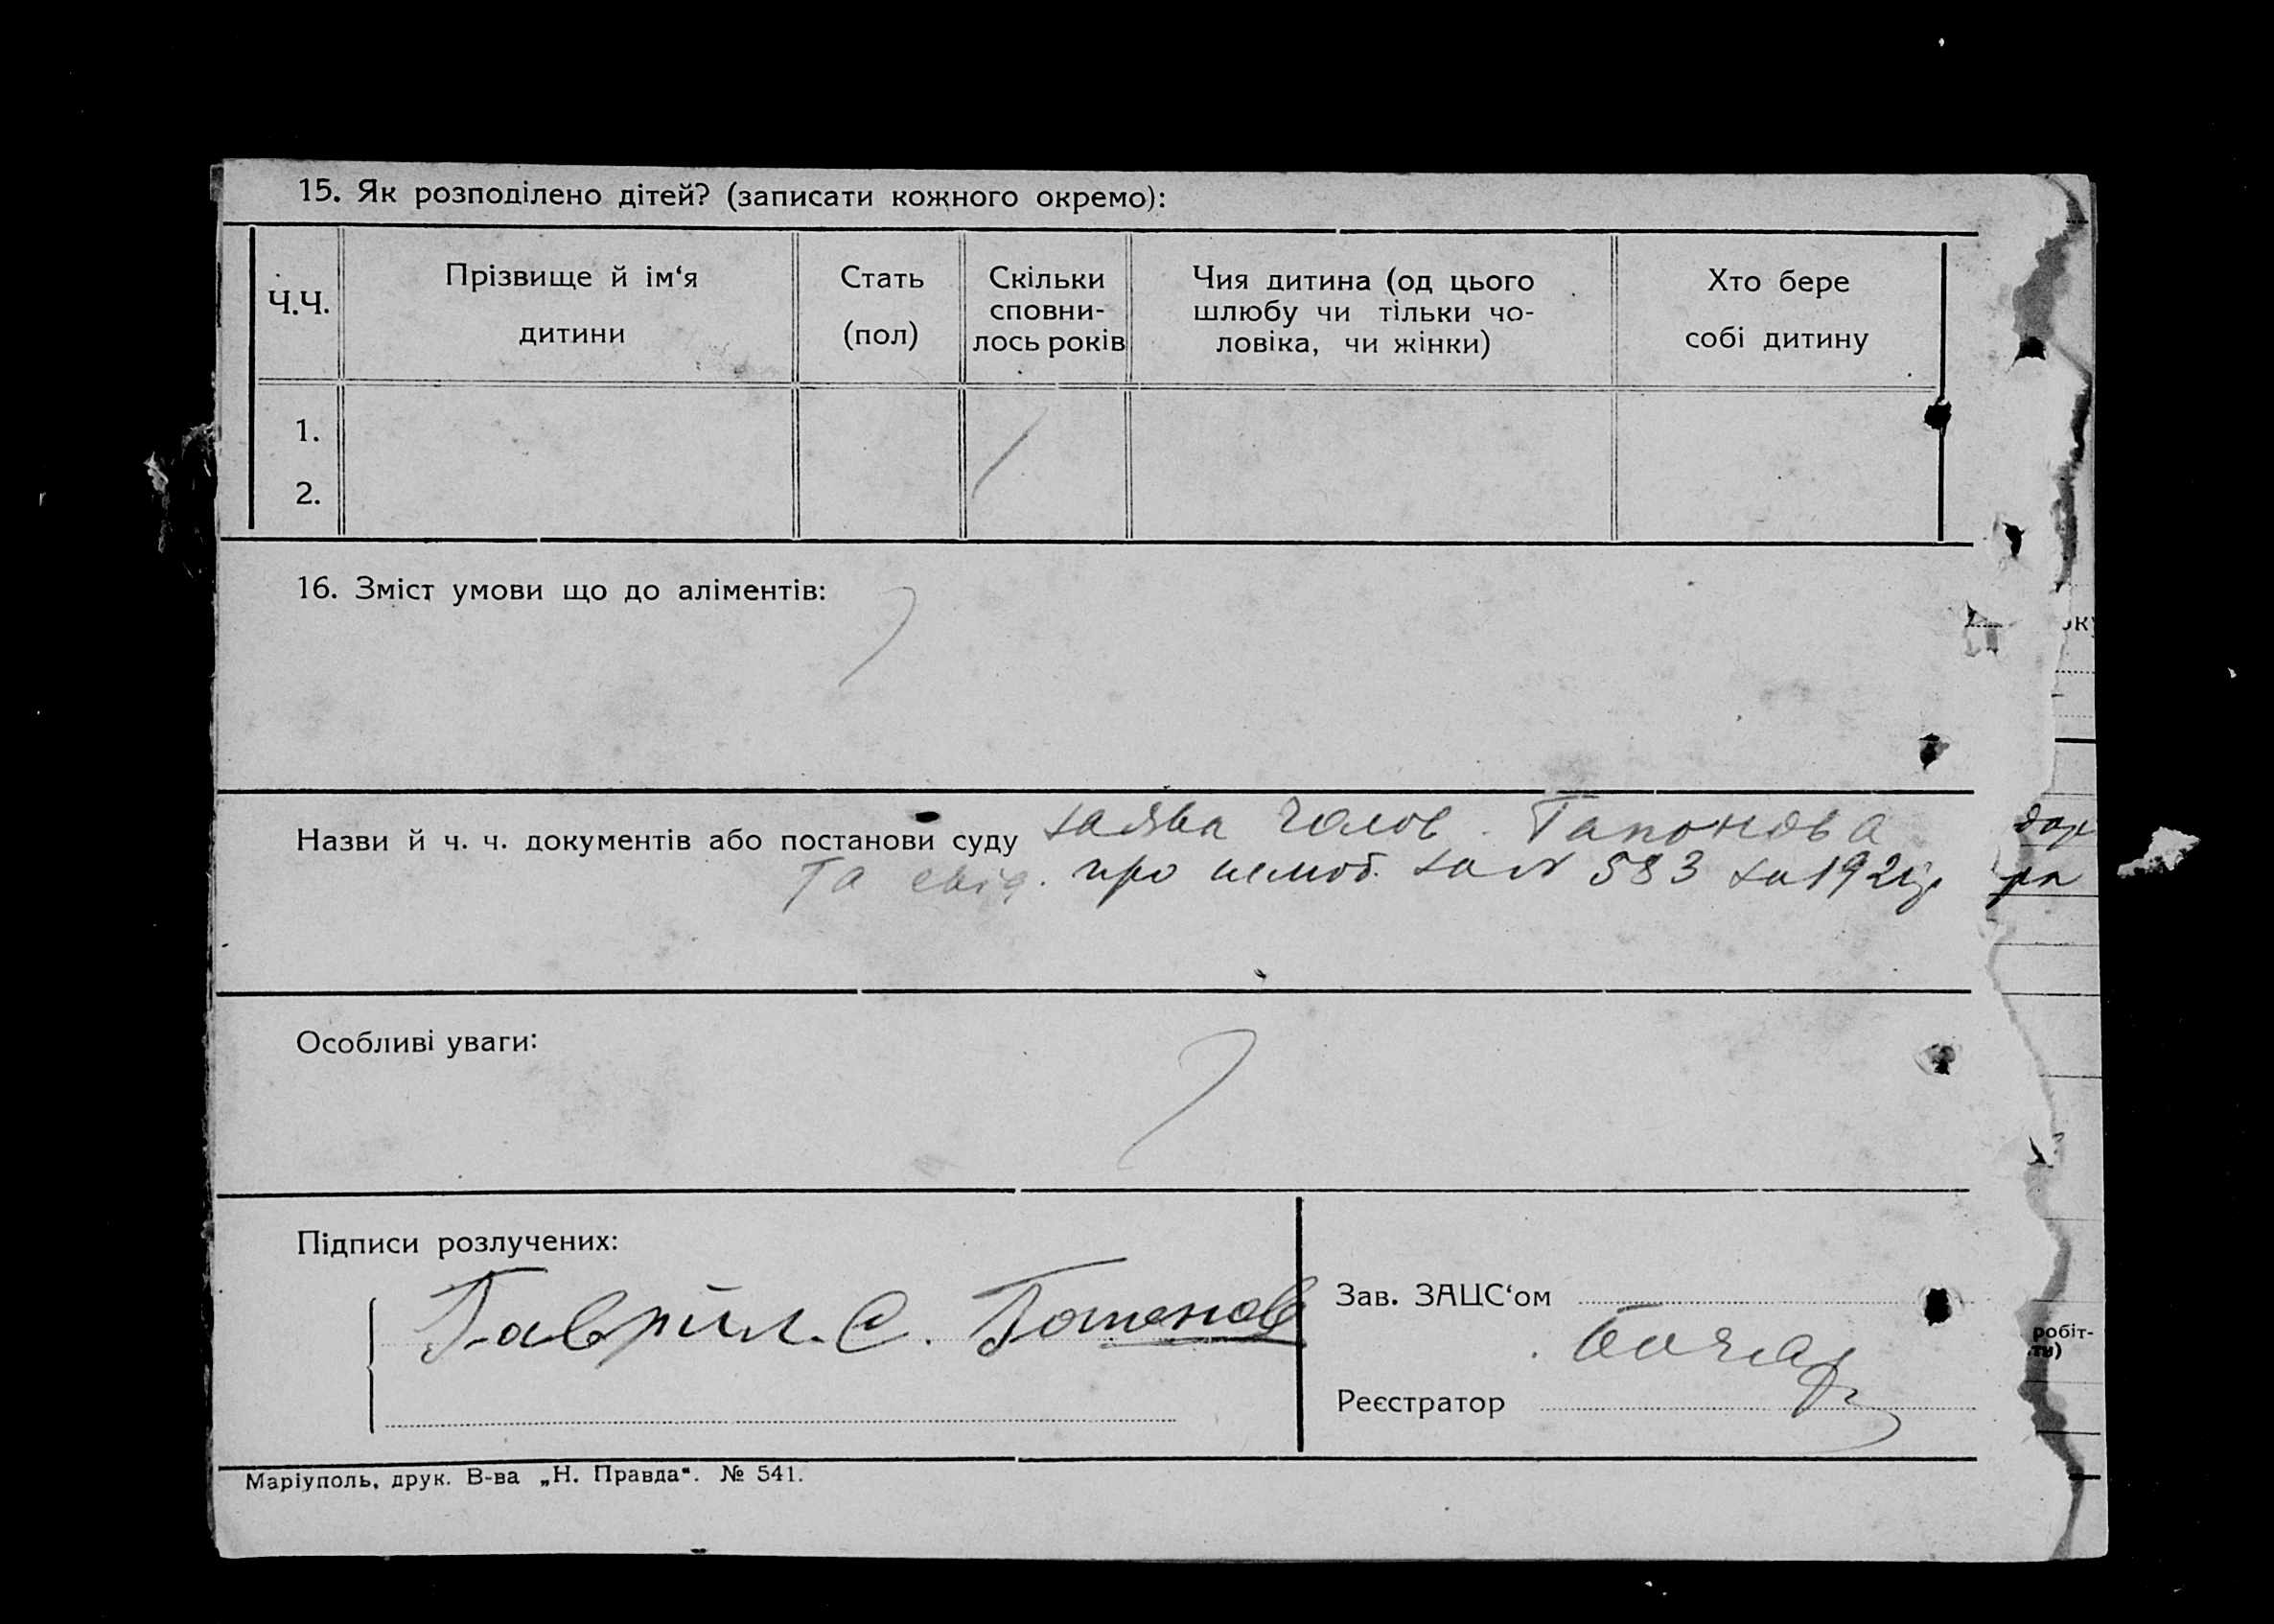 15. Як розподілено дітей? (записати кожного окремо):
Ч.Ч.
Прізвище й ім‘я
дитини
Стать
(пол)
Скільки
сповни-
лось років
Чия дитина (од цього
шлюбу чи тільки чо-
ловіка, чи жінки)
Хто бере
собі дитину
1.
2.
16. Зміст умови що до аліментів:
Назви й ч. ч. документів або постанови суду заява чолов. Гапонова
та свід. про шлюб. за № 583 за 192
Особливі уваги:
Підписи розлучених:
Гаврил. С. Гапонов
Зав. ЗАЦС‘ом
Реєстратор
Маріуполь, друк. В-ва „Н. Правда“. № 541.
робіт-
ти)